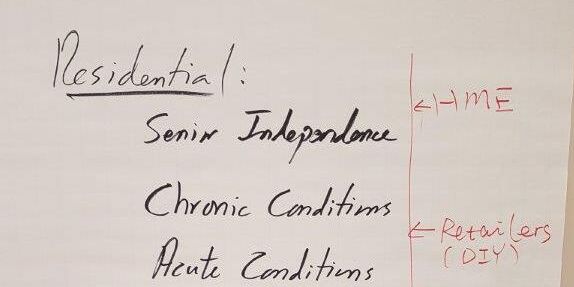 Residential:
← HME
Senior Independence
Chronic Conditions
← Retailers
(DIY)
Acute Conditions